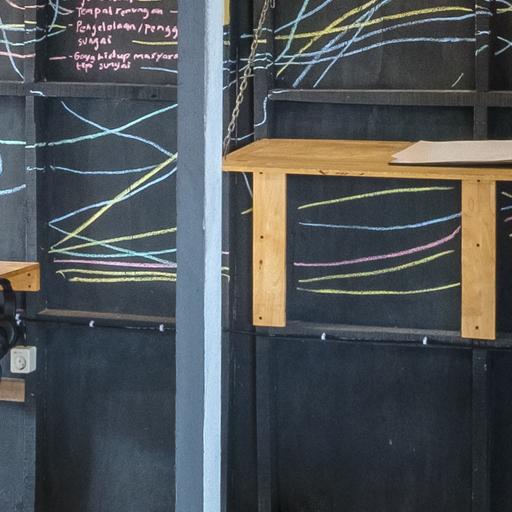 Tempat renungan
Pengelolaan/pengg
sungai
Gaya hidup masyara
tepi sungai